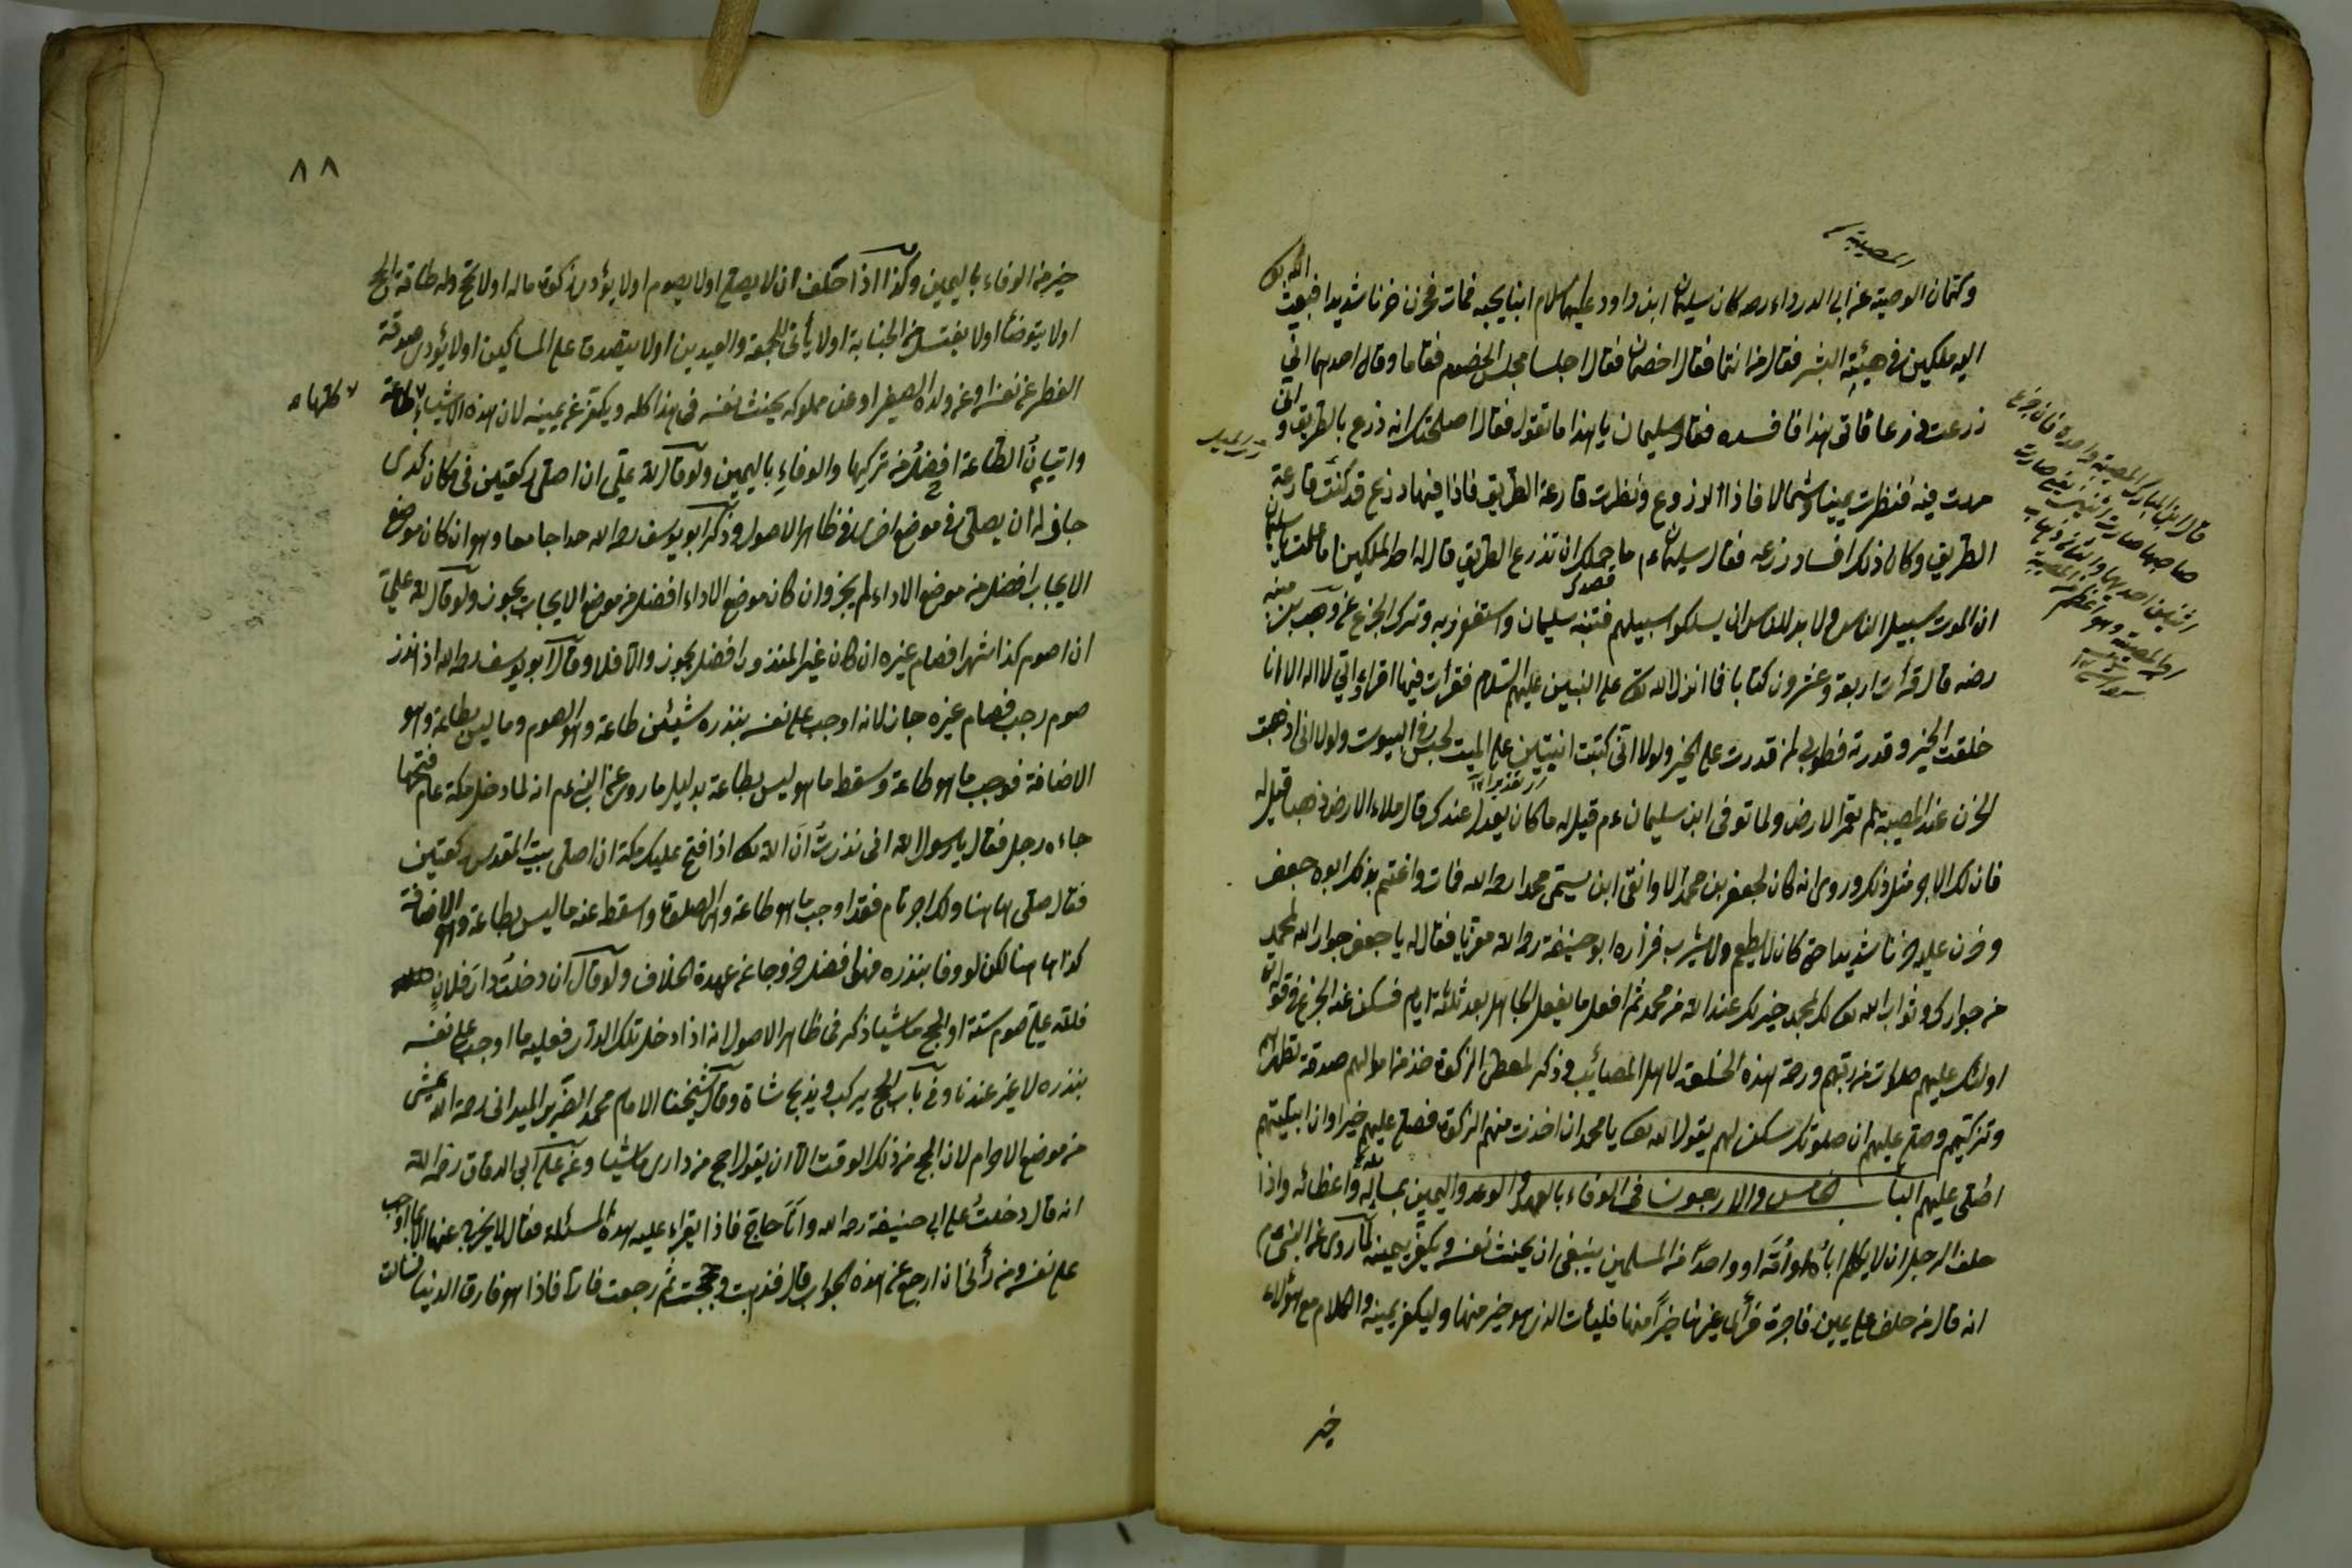 المصيبة
وكتمان الوصية عن ابي الدرداء رضه كان سليمان ابن داود عليهما السلام ابنا يحبه فمات فحزن حزنا شديدا فبعث الله تع
اليه ملكين في هيئة البشر فقال من انتما فقالا خصمان فقال اجلسا مجلس الخصوم فقاما وقال احدهما اني
زرعت زرعا فاتى هذا فافسده فقال سليمان يا هذا ما تقول فقال اصلحك الله انه زرع بالطريق واني
مررت فيه فنظرت يمينا وشمالا فاذا الزروع ونظرت قارعة الطريق فاذا فيها زرع قد كنت قارعة
الطريق وكان ذلك افساد زرعه فقال سليمان عم ما حملك ان تزرع الطريق قال له احد الملكين اما علمت يا سليمان
ان الموت سبيل الناس ولا بد للناس ان يسلكوا سبيلهم فتنبه سليمان واستغفر ربه وترك الجزع عن وهب بن منبه
رضه قال قرأت اربعة وعشرون كتابا مما انزل الله تع على النبيين عليهم السلام فقرأت فيها اقراء اني لا اله الا انا
خلقت الخير وقدرته فطوبى لمن قدرت على الخير ولولا اني كتبت انيتين على الميت لحبس في البيوت ولولا اني اذهبت
الحزن عند المصيبة لم يعمر الارض ولما توفى ابن سليمان عم قيل له ما كان يعدل عندك قال ملاء الارض ذهبا قيل له
فان لك الاجر مثل ذلك وروى انه كان لجعفر بن محمد ابن يسمى محمدا رحمه الله فمات واغتم بذلك ابوه جعفر
وحزن عليه حزنا شديدا حتى كان لا يطعم ولا يشرب فزاره ابو حنيفة رحمه الله معزيا فقال له يا جعفر جوار الله لمحمد
خير من جوارك وثواب الله تع لك لمحمد خير لك عند الله من محمد ثم افعل ما يفعل الجاهل بعد ثلثة ايام فسكن عنه الجزع وقوله تع
اولئك عليهم صلوات من ربهم ورحمة هذه الخلعة لاهل المصائب وذكر لمعطى الزكوة خذ من اموالهم صدقة تطهرهم
وتزكيهم وصل عليهم ان صلوتك سكن لهم يقول الله تع يا محمد ان اخذت منهم الزكوة فصل عليهم خيرا وان ابتليتهم
اصلى عليهم الباب الخامس والاربعون في الوفاء بالعهد والوعد واليمين بمسائله واعطائه واذا
حلف الرجل ان لا يكلم اباه او امه او واحدا من المسلمين ينبغى ان يحنث نفسه ويكفر يمينه كما روى عن النبي عم
انه قال من حلف على يمين فاجرة فرأى غيرها خيرا منها فليأت الذي هو خير منها وليكفر يمينه والكلام مع هؤلاء
خير
٨٨
خير من الوفاء باليمين وكذا اذا حلف ان لا يصلى او لا يصوم او لا يؤدى زكوة ماله او لا يحج وله طاقة الحج
او لا يتوضأ او لا يغتسل من الجنابة او لا يأتى الجمعة والعيدين او لا يتصدق على المساكين او لا يؤدى صدقة
الفطر عن نفسه او عن ولده الصغير او عن مملوكه يحنث نفسه في هذا كله ويكفر عن يمينه لان هذه الاشياء طاعة
كلها
واتيان الطاعة افضل من تركها والوفاء باليمين ولو قال لله علي ان اصلى ركعتين في مكان كذا
جاز له ان يصلى في موضع اخر في ظاهر الاصول وذكر ابو يوسف رحمه الله حدا جامعا وهو ان كان موضع
الايجاب افضل من موضع الاداء لم يجز وان كان موضع الاداء افضل من موضع الايجاب يجوز ولو قال لله علي
ان اصوم كذا شهرا فصام غيره ان كان غير المنذور افضل يجوز والا فلا وقال ابو يوسف رحمه الله اذا نذر
صوم رجب فصام غيره جاز لانه اوجب على نفسه بنذره شيئين طاعة وهو الصوم وما ليس بطاعة وهو
الاضافة فوجب ما هو طاعة وسقط ما هو ليس بطاعة بدليل ما روى عن النبي عم انه لما دخل مكة عام فتحها
جاءه رجل فقال يا رسول الله انى نذرت ان الله تع اذا فتح عليك مكة ان اصلى ببيت المقدس ركعتين
فقال صلى هاهنا ولك اجر تام فقد اوجب ما هو طاعة وهي الصلوة واسقط عنه ما ليس بطاعة وهو الاضافة
كذا هاهنا لكن لو وفا بنذره فهذا افضل خروجا عن عهدة الخلاف ولو قال ان دخلت دار فلان
فلله علي صوم سنة او الحج ماشيا ذكر في ظاهر الاصول انه اذا دخل تلك الدار فعليه ما اوجب على نفسه
بنذره لا غير عندنا وفي باب الحج يركب ويذبح شاة وقال شيخنا الامام محمد الضرير الميدانى رحمه الله يمشى
من موضع الاحرام لان الحج من ذلك الوقت الا ان يقول احج من دارى ماشيا وعن علي ابى الدقاق رحمه الله
انه قال دخلت على ابى حنيفة رحمه الله وانا حاج فاذا يقراء عليه هذه المسئلة فقال لا يخرج عنها الا بما اوجب
على نفسه ومن رأئى ان ارجع عن هذه الجواب قال فذهبت وحججت ثم رجعت فاذا هو فارق الدنيا فسالت